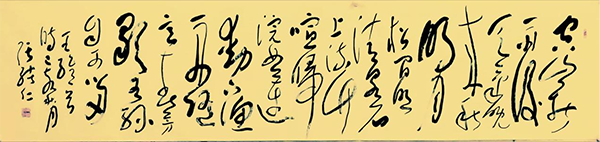 空山新
雨後
天气晚
来秋
明月
松间照
清泉石
上流竹
喧歸
浣女莲
動下渔
舟随
意春芳
歇王孫
自可留
王维诗